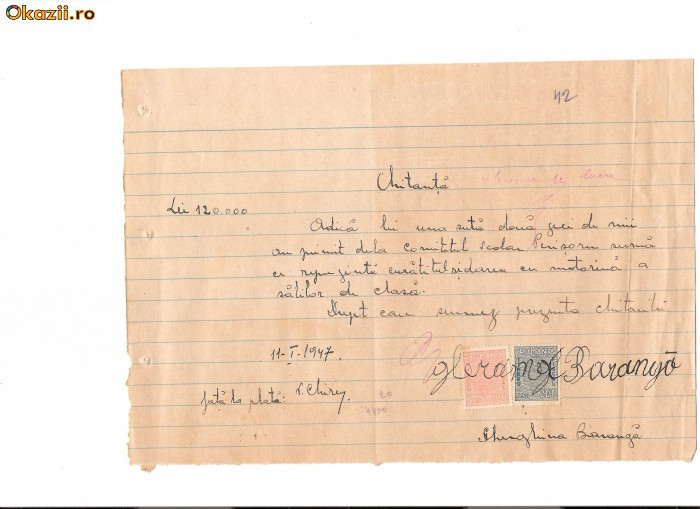 Okazii.ro
42
Chitanță
Lei 120.000
Adică lei una sută două zeci de mii
am primit dela comitetul școlar Perișoru suma
ce reprezintă curățitul și darea cu motorină a
sălilor de clasă.
Drept care semnez prezenta chitanță
11-I-1947.
față la plată:
20
Gherghina Barangă